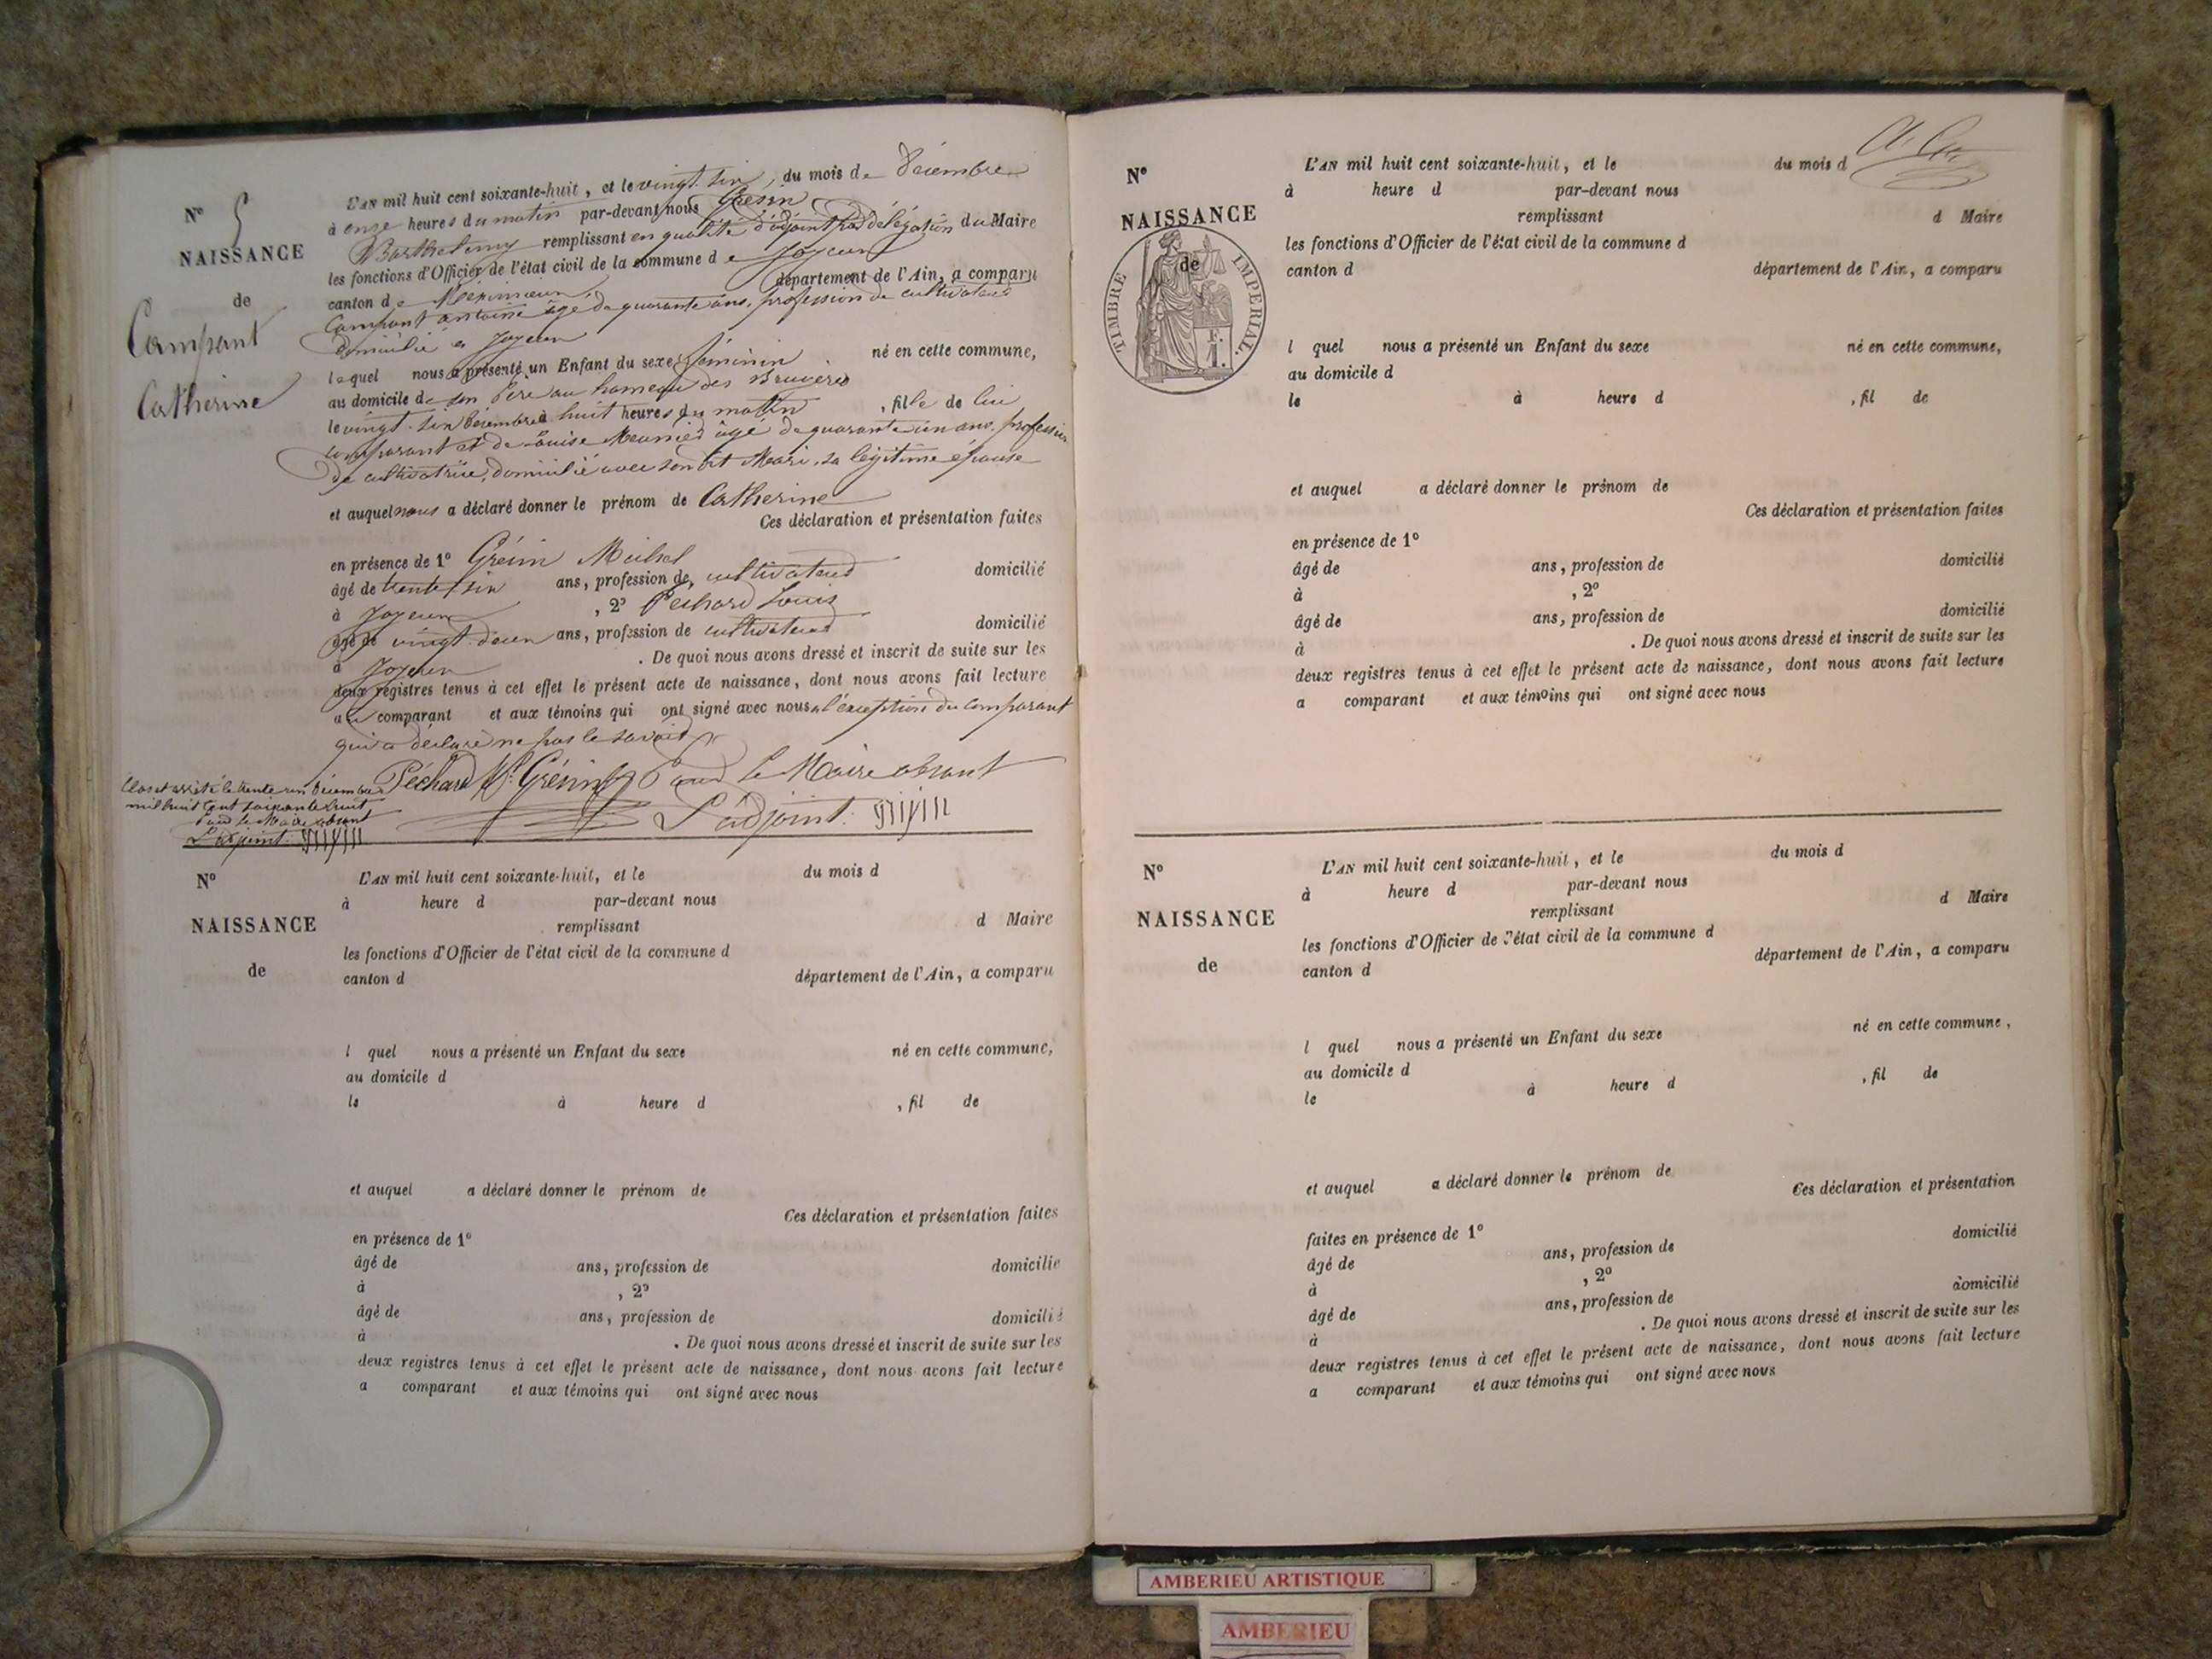 N° 5
NAISSANCE
de
Campant
Catherine
L'AN mil huit cent soixante-huit, et le vingt-six, du mois de Décembre
à onze heures du matin par-devant nous Grésin
Barthelemy remplissant en qualité d'adjoint par délégation du Maire
les fonctions d'Officier de l'état civil de la commune de Joyeux
canton de Meximieux, département de l'Ain, a comparu
Campant antoine âgé de quarante ans, profession de cultivateur
domicilié à Joyeux
lequel nous a présenté un Enfant du sexe féminin né en cette commune,
au domicile de son père au hameau des Bruyères
le vingt-six Décembre à huit heures du matin, fille de lui
comparant et de Louise Meunier âgé de quarante un ans, profession
de cultivatrice, domicilié avec son dit Mari, sa légitime épouse
et auquel nous a déclaré donner le prénom de Catherine
Ces déclaration et présentation faites
en présence de 1° Grésin Michel
âgé de trente six ans, profession de cultivateur domicilié
à Joyeux, 2° Pechard Louis
âgé de vingt deux ans, profession de cultivateur domicilié
à Joyeux. De quoi nous avons dressé et inscrit de suite sur les
deux registres tenus à cet effet le présent acte de naissance, dont nous avons fait lecture
au comparant et aux témoins qui ont signé avec nous à l'exception du comparant
qui a déclaré ne pas le savoir
Péchard Grésin Pour le Maire absent
L'adjoint
Clos et arrêté le trente un Décembre
mil huit cent soixante huit
Pour le Maire absent
L'adjoint
N°
NAISSANCE
de
L'AN mil huit cent soixante-huit, et le du mois d
à heure d par-devant nous
remplissant d Maire
les fonctions d'Officier de l'état civil de la commune d
canton d département de l'Ain, a comparu
l quel nous a présenté un Enfant du sexe né en cette commune,
au domicile d
le à heure d , fil de
et auquel a déclaré donner le prénom de
Ces déclaration et présentation faites
en présence de 1°
âgé de ans, profession de domicilié
à , 2°
âgé de ans, profession de domicilié
à . De quoi nous avons dressé et inscrit de suite sur les
deux registres tenus à cet effet le présent acte de naissance, dont nous avons fait lecture
a comparant et aux témoins qui ont signé avec nous
N°
NAISSANCE
de
TIMBRE IMPERIAL.
L'AN mil huit cent soixante-huit, et le du mois d
à heure d par-devant nous
remplissant d Maire
les fonctions d'Officier de l'état civil de la commune d
canton d département de l'Ain, a comparu
l quel nous a présenté un Enfant du sexe né en cette commune,
au domicile d
le à heure d , fil de
et auquel a déclaré donner le prénom de
Ces déclaration et présentation faites
en présence de 1°
âgé de ans, profession de domicilié
à , 2°
âgé de ans, profession de domicilié
à . De quoi nous avons dressé et inscrit de suite sur les
deux registres tenus à cet effet le présent acte de naissance, dont nous avons fait lecture
a comparant et aux témoins qui ont signé avec nous
N°
NAISSANCE
de
L'AN mil huit cent soixante-huit, et le du mois d
à heure d par-devant nous
remplissant d Maire
les fonctions d'Officier de l'état civil de la commune d
canton d département de l'Ain, a comparu
l quel nous a présenté un Enfant du sexe né en cette commune,
au domicile d
le à heure d , fil de
et auquel a déclaré donner le prénom de
Ces déclaration et présentation
faites en présence de 1° domicilié
âgé de ans, profession de
à , 2°
âgé de ans, profession de domicilié
à . De quoi nous avons dressé et inscrit de suite sur les
deux registres tenus à cet effet le présent acte de naissance, dont nous avons fait lecture
a comparant et aux témoins qui ont signé avec nous
AMBERIEU ARTISTIQUE
AMBERIEU